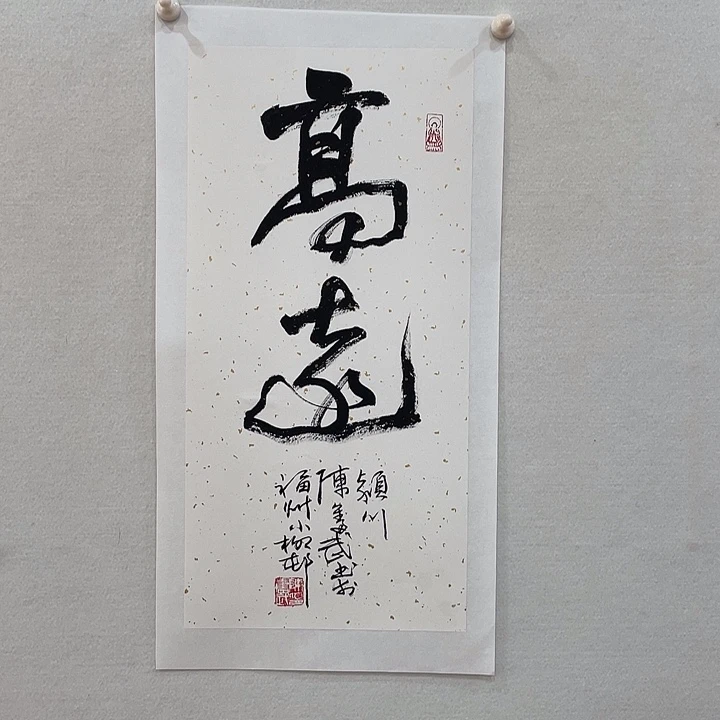 高遠
潁川
陳美武書於
福州小柳邨